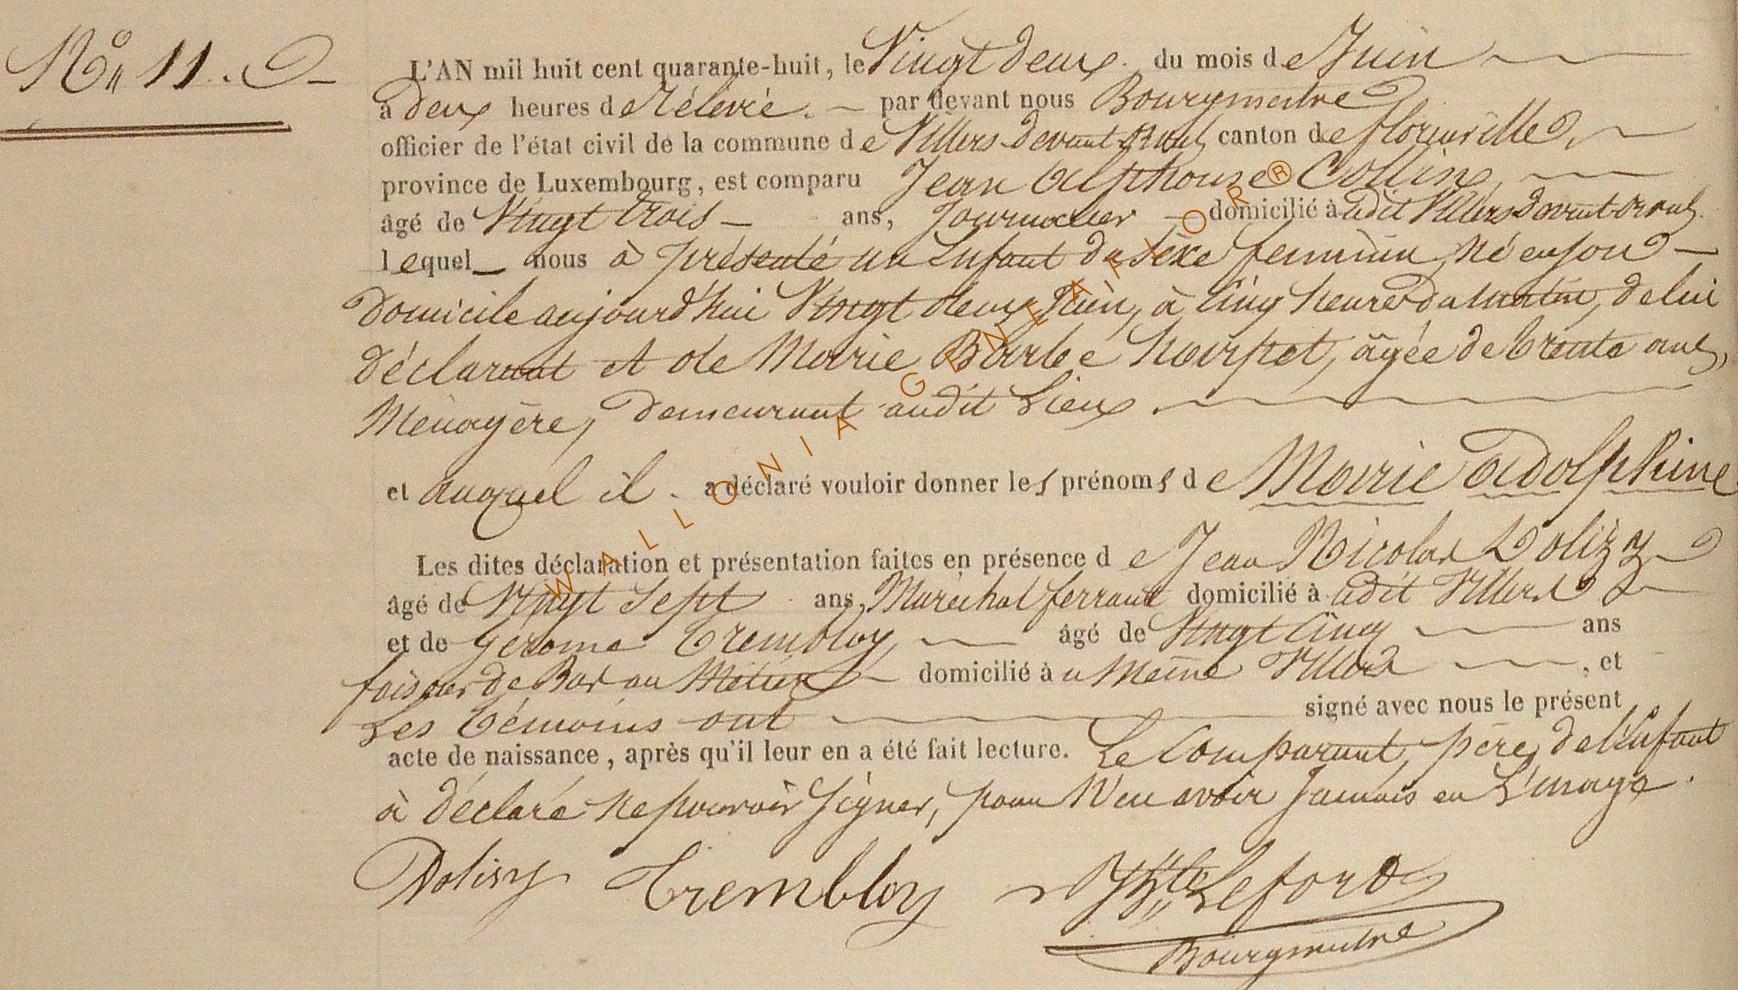 No 11.
L'AN mil huit cent quarante-huit, le Vingt deux. du mois de Juin
à deux heures de rélévée. par devant nous Bourgmestre
officier de l'état civil de la commune de Villers devant Orval, canton de florenville,
province de Luxembourg, est comparu Jean Alphonse Collin,
âgé de Vingt trois ans, Journalier domicilié à udit Villers devant orval.
lequel nous à présenté un Enfant du sèxe féminin, Né en son
Domicile aujourd'hui Vingt deux Juin, à cinq heures du matin, de lui
déclarant et de Marie Barbe Noirpet, âgée de trente ans,
Ménagère, demeurant audit Lieux.
et auquel il a déclaré vouloir donner les prénoms de Marie Adolphine
Les dites déclaration et présentation faites en présence de Jean Nicolas Dolizy
âgé de Vingt sept ans, Maréchal ferrant domicilié à udit Villers
et de Gérome Trembloy, âgé de Vingt cinq ans
faiseur de Bas au Métier domicilié à u Même Villers, et
Les témoins ont signé avec nous le présent
acte de naissance, après qu'il leur en a été fait lecture. Le Comparant, père, de l'Enfant
à déclaré ne pouvoir signer, pour N'en avoir Jamais eu L'usage.
Dolisy Trembloy Lefort
Bourgmestre
WALLONIA-GENEAFLOR®